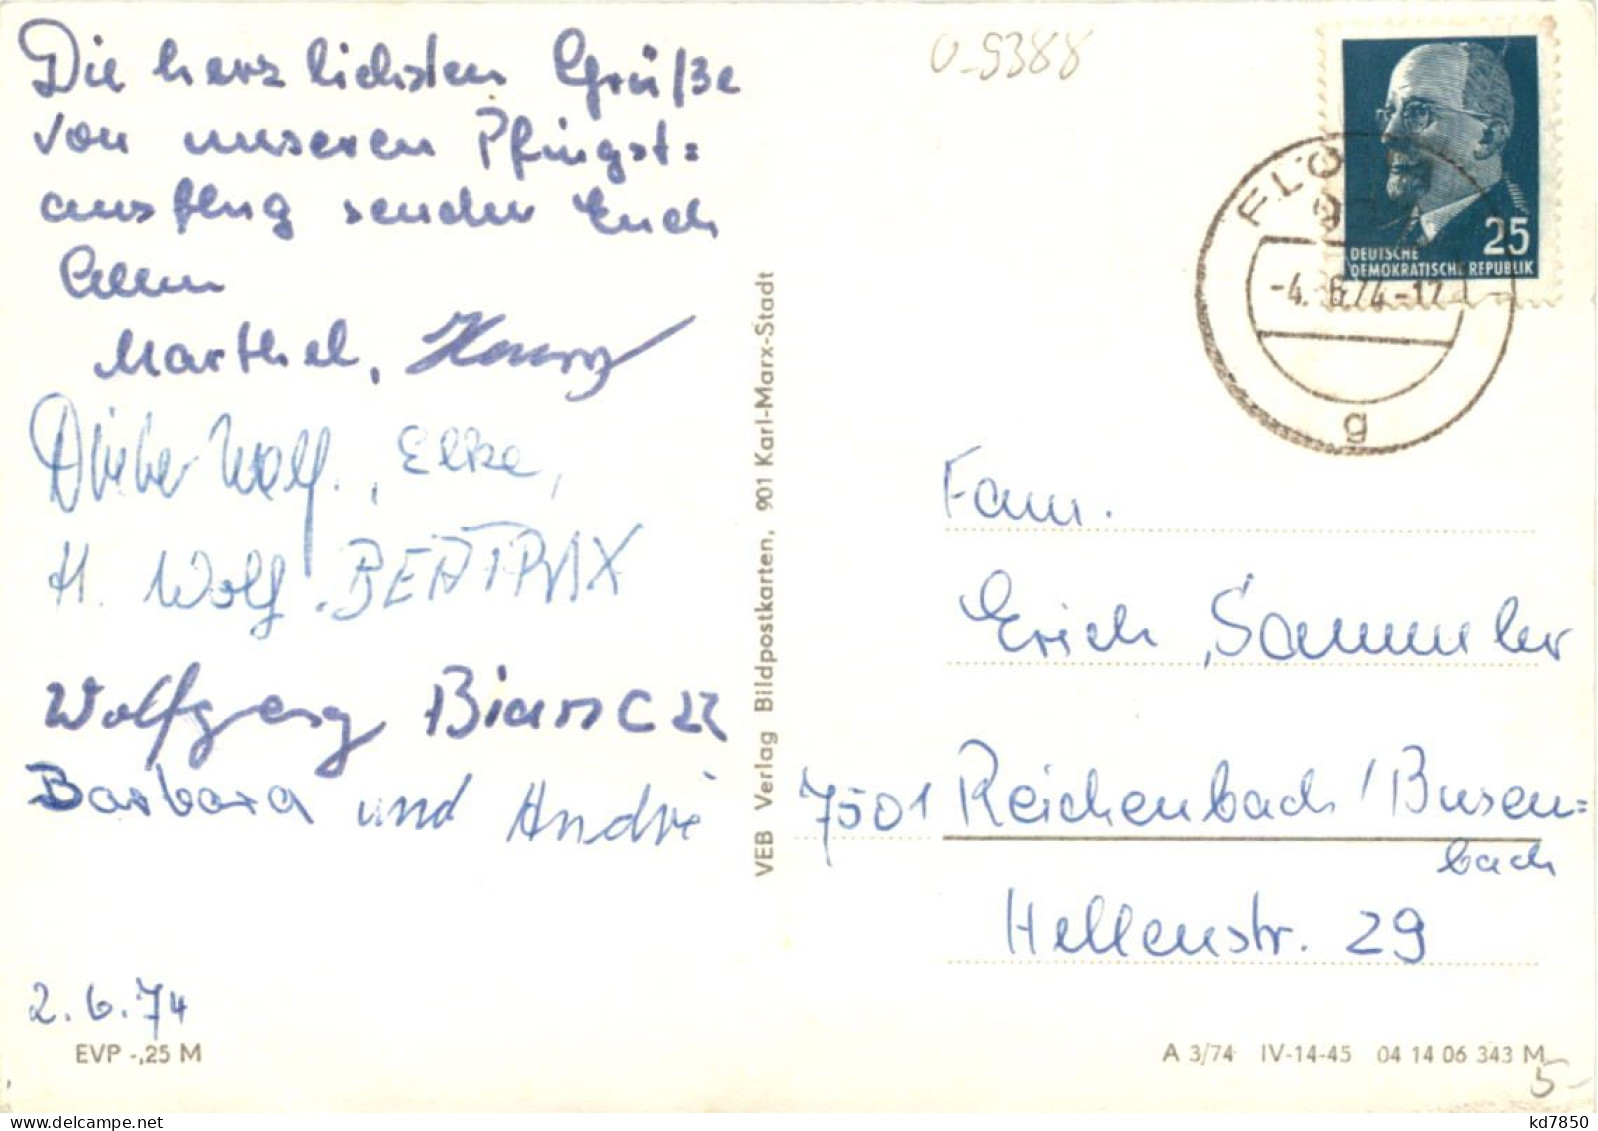 Die herzlichsten Grüße
von unseren Pfingst=
ausflug senden Euch
Allen
Marthel,
Wolf., Elke,
H. Wolf. BEATRIX
Wolfgang
Barbara und André
2.6.74
EVP -,25 M
VEB Verlag Bildpostkarten, 901 Karl-Marx-Stadt
0-9388
25
DEUTSCHE
DEMOKRATISCHE REPUBLIK
FLÖ
-4.-6.74-17
g
Fam.
Erich Sammler
7501 Reichenbach/Busen=
bach
Hellenstr. 29
A 3/74 IV-14-45 04 14 06 343 M
5-
kd7850